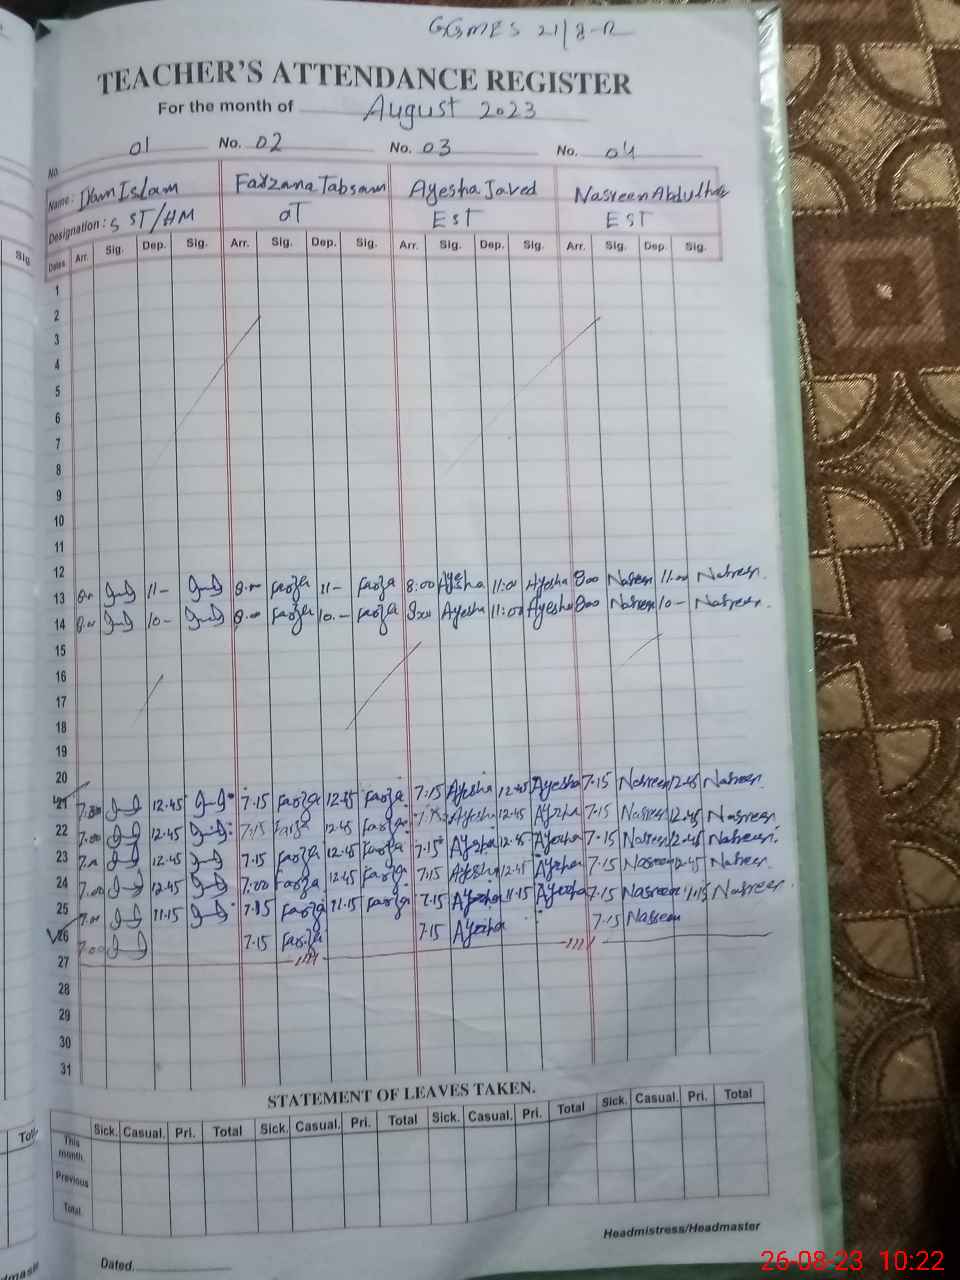 GGMES 21/8-R
TEACHER'S ATTENDANCE REGISTER
For the month of August 2023
No. 01 No. 02 No. 03 No. 04
Name: Islam Farzana Tabsam Ayesha Javed Nasreen
Designation: S ST/HM OT EST EST
Dates Arr. Sig. Dep. Sig. Arr. Sig. Dep. Sig. Arr. Sig. Dep. Sig. Arr. Sig. Dep. Sig.
1
2
3
4
5
6
7
8
9
10
11
12
13 11- 8.00 Farza 11- Farza 8:00 Ayesha 11:00 Ayesha 8:00 Nasreen 11:00 Nasreen
14 8.00 10- 8.00 Farza 10- Farza 8:00 Ayesha 11:00 Ayesha 8:00 Nasreen 10- Nasreen
15
16
17
18
19
20
21 7.00 12.45 7.15 Farza 12.45 Farza 7:15 Ayesha 12.45 Ayesha 7.15 Nasreen 12.45 Nasreen
22 7.00 12.45 7.15 Farza 12.45 Farza 7.15 Ayesha 12.45 Ayesha 7.15 Nasreen 12.45 Nasreen
23 7.00 12.45 7.15 Farza 12.45 Farza 7.15 Ayesha 12.45 Ayesha 7.15 Nasreen 12.45 Nasreen
24 7.00 12.45 7.00 Farza 12.45 Farza 7.15 Ayesha 12.45 Ayesha 7.15 Nasreen 12.45 Nasreen
25 7.00 11.15 7.15 Farza 11.15 Farza 7.15 Ayesha 11.15 Ayesha 7.15 Nasreen 11.15 Nasreen
26 7.00 7.15 Farza 7.15 Ayesha 7.15 Nasreen
27
28
29
30
31
STATEMENT OF LEAVES TAKEN.
Sick. Casual. Pri. Total Sick. Casual. Pri. Total Sick. Casual. Pri. Total Sick. Casual. Pri. Total
This month.
Previous
Total
Headmistress/Headmaster
Dated
26-08-23 10:22